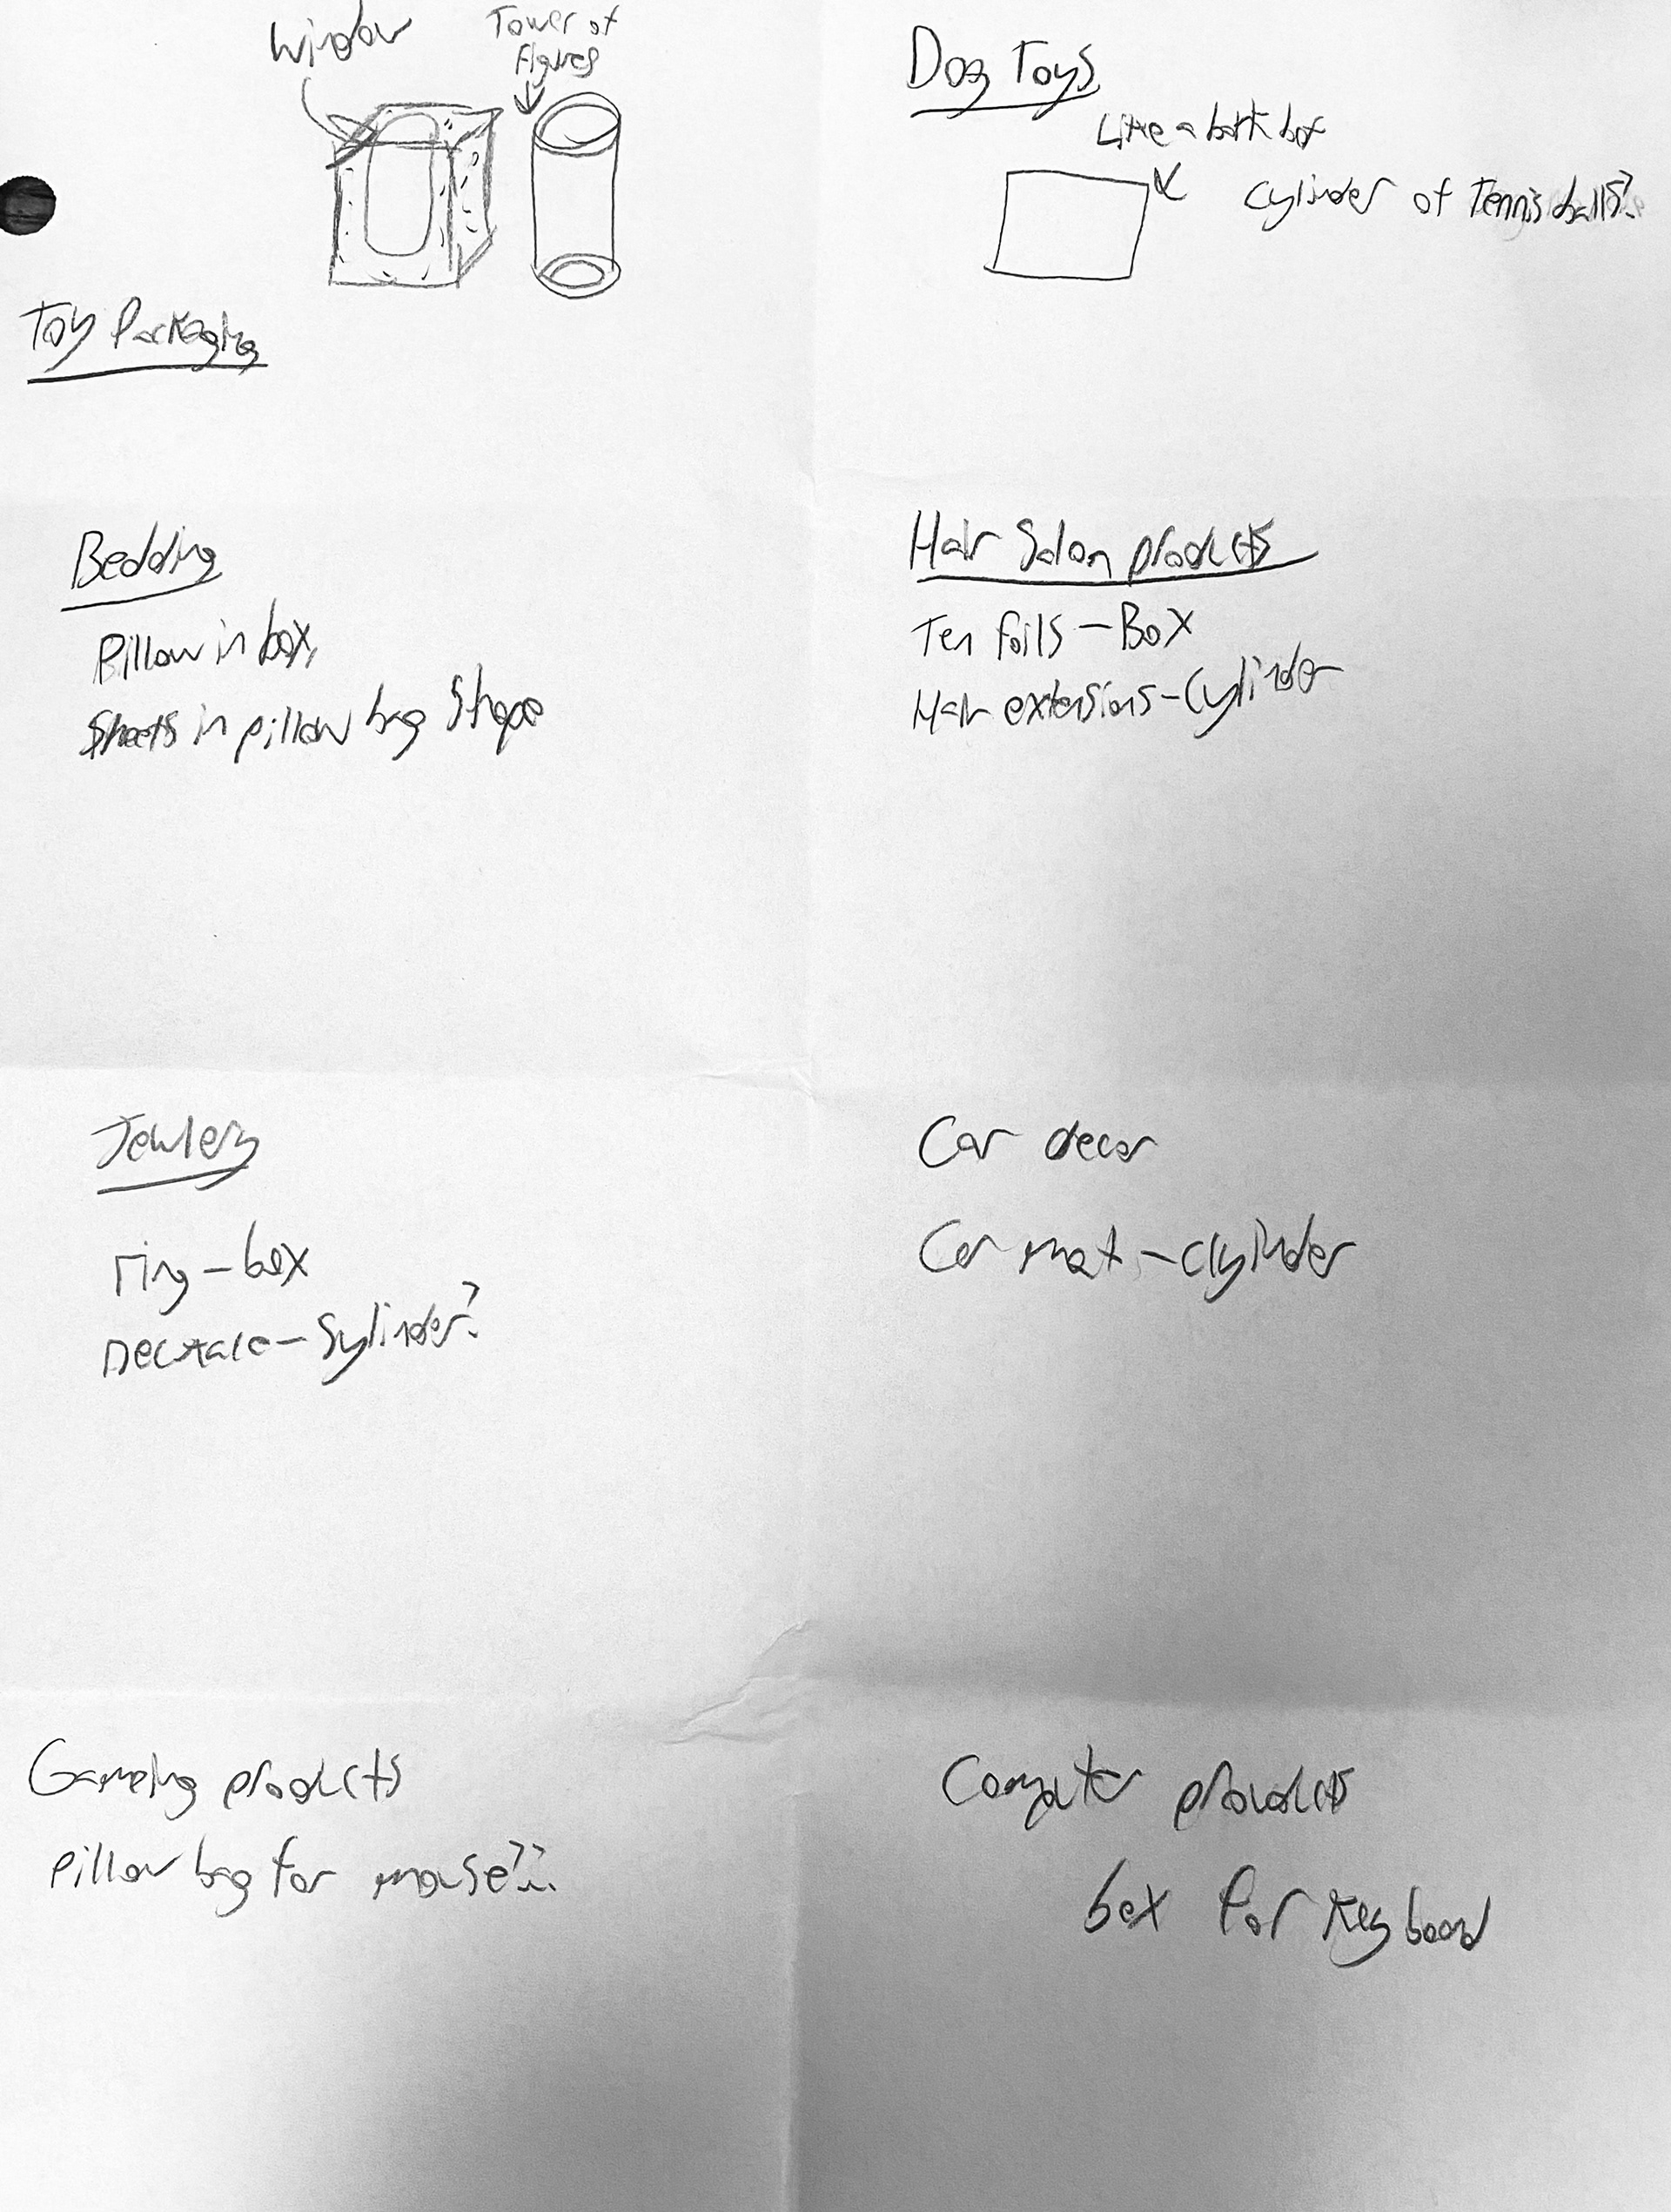 Window
Tower of
Figures
Toy Packaging
Dog Toys
Like a bark box
Cylinder of Tennis balls?
Bedding
Pillow in box,
Sheets in pillow bag Shape
Hair Salon products
Ten foils - Box
Hair extensions - Cylinder
Jewlery
ring - box
Necklace - Sylinder?
Car decor
Car mat - Clyinder
Gameing products
Pillow bag for mouse??
Computer products
box for Keyboard